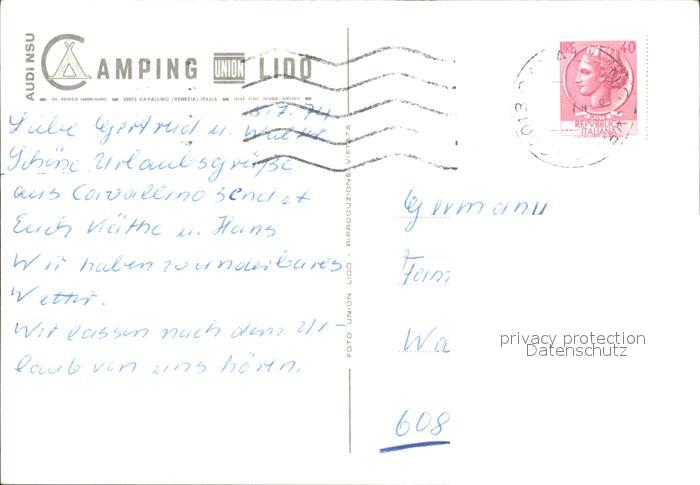 AUDI NSU
CAMPING UNION LIDO
30013 CAVALLINO (VENEZIA) ITALIA
5.7.74
Liebe Gertrud u. Walter
Schöne Urlaubsgrüße
aus Cavallino sendet
Euch Käthe u. Hans
Wir haben wunderbares
Wetter.
Wir lassen nach dem Ur-
laub von uns hören.
FOTO UNION LIDO - RIPRODUZIONE VIETATA
LIRE 40
POSTE
REPVBBLICA
ITALIANA
Germany
Fam
Wa
608
privacy protection
Datenschutz